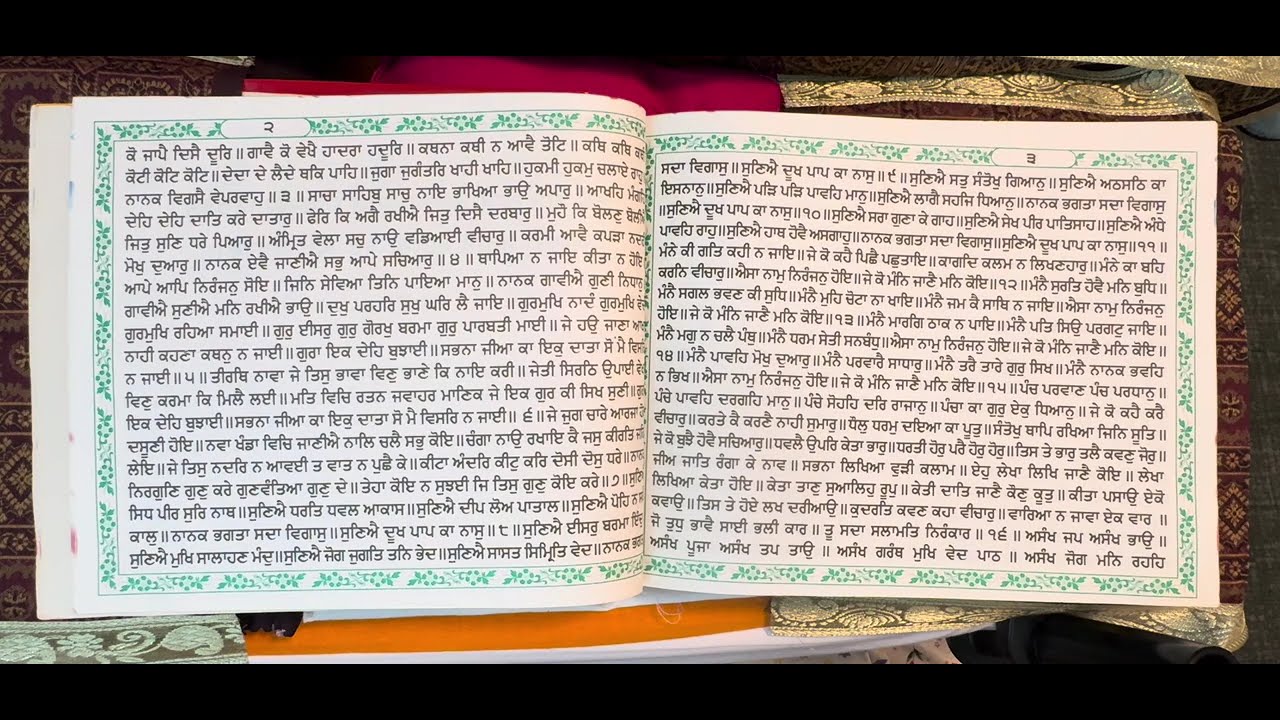 ੨
ਕੋ ਜਾਪੈ ਦਿਸੈ ਦੂਰਿ॥ ਗਾਵੈ ਕੋ ਵੇਖੈ ਹਾਦਰਾ ਹਦੂਰਿ॥ ਕਥਨਾ ਕਥੀ ਨ ਆਵੈ ਤੋਟਿ॥ ਕਥਿ ਕਥਿ
ਕੋਟੀ ਕੋਟਿ ਕੋਟਿ॥ ਦੇਦਾ ਦੇ ਲੈਦੇ ਥਕਿ ਪਾਹਿ॥ ਜੁਗਾ ਜੁਗੰਤਰਿ ਖਾਹੀ ਖਾਹਿ॥ ਹੁਕਮੀ ਹੁਕਮੁ ਚਲਾਏ ਰਾਹੁ॥
ਨਾਨਕ ਵਿਗਸੈ ਵੇਪਰਵਾਹੁ॥ ੩॥ ਸਾਚਾ ਸਾਹਿਬੁ ਸਾਚੁ ਨਾਇ ਭਾਖਿਆ ਭਾਉ ਅਪਾਰੁ॥ ਆਖਹਿ ਮੰਗਹਿ
ਦੇਹਿ ਦੇਹਿ ਦਾਤਿ ਕਰੇ ਦਾਤਾਰੁ॥ ਫੇਰਿ ਕਿ ਅਗੈ ਰਖੀਐ ਜਿਤੁ ਦਿਸੈ ਦਰਬਾਰੁ॥ ਮੁਹੌ ਕਿ ਬੋਲਣੁ ਬੋਲੀਐ
ਜਿਤੁ ਸੁਣਿ ਧਰੇ ਪਿਆਰੁ॥ ਅੰਮ੍ਰਿਤ ਵੇਲਾ ਸਚੁ ਨਾਉ ਵਡਿਆਈ ਵੀਚਾਰੁ॥ ਕਰਮੀ ਆਵੈ ਕਪੜਾ ਨਦਰੀ
ਮੋਖੁ ਦੁਆਰੁ॥ ਨਾਨਕ ਏਵੈ ਜਾਣੀਐ ਸਭੁ ਆਪੇ ਸਚਿਆਰੁ॥ ੪॥ ਥਾਪਿਆ ਨ ਜਾਇ ਕੀਤਾ ਨ ਹੋਇ॥
ਆਪੇ ਆਪਿ ਨਿਰੰਜਨੁ ਸੋਇ॥ ਜਿਨਿ ਸੇਵਿਆ ਤਿਨਿ ਪਾਇਆ ਮਾਨੁ॥ ਨਾਨਕ ਗਾਵੀਐ ਗੁਣੀ ਨਿਧਾਨੁ॥
ਗਾਵੀਐ ਸੁਣੀਐ ਮਨਿ ਰਖੀਐ ਭਾਉ॥ ਦੁਖੁ ਪਰਹਰਿ ਸੁਖੁ ਘਰਿ ਲੈ ਜਾਇ॥ ਗੁਰਮੁਖਿ ਨਾਦੰ ਗੁਰਮੁਖਿ ਵੇਦੰ
ਗੁਰਮੁਖਿ ਰਹਿਆ ਸਮਾਈ॥ ਗੁਰੁ ਈਸਰੁ ਗੁਰੁ ਗੋਰਖੁ ਬਰਮਾ ਗੁਰੁ ਪਾਰਬਤੀ ਮਾਈ॥ ਜੇ ਹਉ ਜਾਣਾ ਆਖਾ
ਨਾਹੀ ਕਹਣਾ ਕਥਨੁ ਨ ਜਾਈ॥ ਗੁਰਾ ਇਕ ਦੇਹਿ ਬੁਝਾਈ॥ ਸਭਨਾ ਜੀਆ ਕਾ ਇਕੁ ਦਾਤਾ ਸੋ ਮੈ ਵਿਸਰਿ
ਨ ਜਾਈ॥ ੫॥ ਤੀਰਥਿ ਨਾਵਾ ਜੇ ਤਿਸੁ ਭਾਵਾ ਵਿਣੁ ਭਾਣੇ ਕਿ ਨਾਇ ਕਰੀ॥ ਜੇਤੀ ਸਿਰਠਿ ਉਪਾਈ ਵੇਖਾ
ਵਿਣੁ ਕਰਮਾ ਕਿ ਮਿਲੈ ਲਈ॥ ਮਤਿ ਵਿਚਿ ਰਤਨ ਜਵਾਹਰ ਮਾਣਿਕ ਜੇ ਇਕ ਗੁਰ ਕੀ ਸਿਖ ਸੁਣੀ॥ ਗੁਰਾ
ਇਕ ਦੇਹਿ ਬੁਝਾਈ॥ ਸਭਨਾ ਜੀਆ ਕਾ ਇਕੁ ਦਾਤਾ ਸੋ ਮੈ ਵਿਸਰਿ ਨ ਜਾਈ॥ ੬॥ ਜੇ ਜੁਗ ਚਾਰੇ ਆਰਜਾ ਹੋਰ
ਦਸੂਣੀ ਹੋਇ॥ ਨਵਾ ਖੰਡਾ ਵਿਚਿ ਜਾਣੀਐ ਨਾਲਿ ਚਲੈ ਸਭੁ ਕੋਇ॥ ਚੰਗਾ ਨਾਉ ਰਖਾਇ ਕੈ ਜਸੁ ਕੀਰਤਿ ਜਗਿ
ਲੇਇ॥ ਜੇ ਤਿਸੁ ਨਦਰਿ ਨ ਆਵਈ ਤ ਵਾਤ ਨ ਪੁਛੈ ਕੇ॥ ਕੀਟਾ ਅੰਦਰਿ ਕੀਟੁ ਕਰਿ ਦੋਸੀ ਦੋਸੁ ਧਰੇ॥ ਨਾਨਕ
ਨਿਰਗੁਣਿ ਗੁਣੁ ਕਰੇ ਗੁਣਵੰਤਿਆ ਗੁਣੁ ਦੇ॥ ਤੇਹਾ ਕੋਇ ਨ ਸੁਝਈ ਜਿ ਤਿਸੁ ਗੁਣੁ ਕੋਇ ਕਰੇ॥ ੭॥ ਸੁਣਿਐ
ਸਿਧ ਪੀਰ ਸੁਰਿ ਨਾਥ॥ ਸੁਣਿਐ ਧਰਤਿ ਧਵਲ ਆਕਾਸ॥ ਸੁਣਿਐ ਦੀਪ ਲੋਅ ਪਾਤਾਲ॥ ਸੁਣਿਐ ਪੋਹਿ ਨ ਸਕੈ
ਕਾਲੁ॥ ਨਾਨਕ ਭਗਤਾ ਸਦਾ ਵਿਗਾਸੁ॥ ਸੁਣਿਐ ਦੂਖ ਪਾਪ ਕਾ ਨਾਸੁ॥ ੮॥ ਸੁਣਿਐ ਈਸਰੁ ਬਰਮਾ ਇੰਦੁ॥
ਸੁਣਿਐ ਮੁਖਿ ਸਾਲਾਹਣ ਮੰਦੁ॥ ਸੁਣਿਐ ਜੋਗ ਜੁਗਤਿ ਤਨਿ ਭੇਦ॥ ਸੁਣਿਐ ਸਾਸਤ ਸਿਮ੍ਰਿਤਿ ਵੇਦ॥ ਨਾਨਕ ਭਗਤਾ
੩
ਸਦਾ ਵਿਗਾਸੁ॥ ਸੁਣਿਐ ਦੂਖ ਪਾਪ ਕਾ ਨਾਸੁ॥ ੯॥ ਸੁਣਿਐ ਸਤੁ ਸੰਤੋਖੁ ਗਿਆਨੁ॥ ਸੁਣਿਐ ਅਠਸਠਿ ਕਾ
ਇਸਨਾਨੁ॥ ਸੁਣਿਐ ਪੜਿ ਪੜਿ ਪਾਵਹਿ ਮਾਨੁ॥ ਸੁਣਿਐ ਲਾਗੈ ਸਹਜਿ ਧਿਆਨੁ॥ ਨਾਨਕ ਭਗਤਾ ਸਦਾ ਵਿਗਾਸੁ
॥ ਸੁਣਿਐ ਦੂਖ ਪਾਪ ਕਾ ਨਾਸੁ॥ ੧੦॥ ਸੁਣਿਐ ਸਰਾ ਗੁਣਾ ਕੇ ਗਾਹ॥ ਸੁਣਿਐ ਸੇਖ ਪੀਰ ਪਾਤਿਸਾਹ॥ ਸੁਣਿਐ ਅੰਧੇ
ਪਾਵਹਿ ਰਾਹੁ॥ ਸੁਣਿਐ ਹਾਥ ਹੋਵੈ ਅਸਗਾਹੁ॥ ਨਾਨਕ ਭਗਤਾ ਸਦਾ ਵਿਗਾਸੁ॥ ਸੁਣਿਐ ਦੂਖ ਪਾਪ ਕਾ ਨਾਸੁ॥ ੧੧॥
ਮੰਨੇ ਕੀ ਗਤਿ ਕਹੀ ਨ ਜਾਇ॥ ਜੇ ਕੋ ਕਹੈ ਪਿਛੈ ਪਛੁਤਾਇ॥ ਕਾਗਦਿ ਕਲਮ ਨ ਲਿਖਣਹਾਰੁ॥ ਮੰਨੇ ਕਾ ਬਹਿ
ਕਰਨਿ ਵੀਚਾਰੁ॥ ਐਸਾ ਨਾਮੁ ਨਿਰੰਜਨੁ ਹੋਇ॥ ਜੇ ਕੋ ਮੰਨਿ ਜਾਣੈ ਮਨਿ ਕੋਇ॥ ੧੨॥ ਮੰਨੈ ਸੁਰਤਿ ਹੋਵੈ ਮਨਿ ਬੁਧਿ॥
ਮੰਨੈ ਸਗਲ ਭਵਣ ਕੀ ਸੁਧਿ॥ ਮੰਨੈ ਮੁਹਿ ਚੋਟਾ ਨਾ ਖਾਇ॥ ਮੰਨੈ ਜਮ ਕੈ ਸਾਥਿ ਨ ਜਾਇ॥ ਐਸਾ ਨਾਮੁ ਨਿਰੰਜਨੁ
ਹੋਇ॥ ਜੇ ਕੋ ਮੰਨਿ ਜਾਣੈ ਮਨਿ ਕੋਇ॥ ੧੩॥ ਮੰਨੈ ਮਾਰਗਿ ਠਾਕ ਨ ਪਾਇ॥ ਮੰਨੈ ਪਤਿ ਸਿਉ ਪਰਗਟੁ ਜਾਇ॥
ਮੰਨੈ ਮਗੁ ਨ ਚਲੈ ਪੰਥੁ॥ ਮੰਨੈ ਧਰਮ ਸੇਤੀ ਸਨਬੰਧੁ॥ ਐਸਾ ਨਾਮੁ ਨਿਰੰਜਨੁ ਹੋਇ॥ ਜੇ ਕੋ ਮੰਨਿ ਜਾਣੈ ਮਨਿ ਕੋਇ॥
੧੪॥ ਮੰਨੈ ਪਾਵਹਿ ਮੋਖੁ ਦੁਆਰੁ॥ ਮੰਨੈ ਪਰਵਾਰੈ ਸਾਧਾਰੁ॥ ਮੰਨੈ ਤਰੈ ਤਾਰੇ ਗੁਰੁ ਸਿਖ॥ ਮੰਨੈ ਨਾਨਕ ਭਵਹਿ
ਨ ਭਿਖ॥ ਐਸਾ ਨਾਮੁ ਨਿਰੰਜਨੁ ਹੋਇ॥ ਜੇ ਕੋ ਮੰਨਿ ਜਾਣੈ ਮਨਿ ਕੋਇ॥ ੧੫॥ ਪੰਚ ਪਰਵਾਣ ਪੰਚ ਪਰਧਾਨੁ॥
ਪੰਚੇ ਪਾਵਹਿ ਦਰਗਹਿ ਮਾਨੁ॥ ਪੰਚੇ ਸੋਹਹਿ ਦਰਿ ਰਾਜਾਨੁ॥ ਪੰਚਾ ਕਾ ਗੁਰੁ ਏਕੁ ਧਿਆਨੁ॥ ਜੇ ਕੋ ਕਹੈ ਕਰੈ
ਵੀਚਾਰੁ॥ ਕਰਤੇ ਕੈ ਕਰਣੈ ਨਾਹੀ ਸੁਮਾਰੁ॥ ਧੌਲੁ ਧਰਮੁ ਦਇਆ ਕਾ ਪੂਤੁ॥ ਸੰਤੋਖੁ ਥਾਪਿ ਰਖਿਆ ਜਿਨਿ ਸੂਤਿ॥
ਜੇ ਕੋ ਬੁਝੈ ਹੋਵੈ ਸਚਿਆਰੁ॥ ਧਵਲੈ ਉਪਰਿ ਕੇਤਾ ਭਾਰੁ॥ ਧਰਤੀ ਹੋਰੁ ਪਰੈ ਹੋਰੁ ਹੋਰੁ॥ ਤਿਸ ਤੇ ਭਾਰੁ ਤਲੈ ਕਵਣੁ ਜੋਰੁ॥
ਜੀਅ ਜਾਤਿ ਰੰਗਾ ਕੇ ਨਾਵ॥ ਸਭਨਾ ਲਿਖਿਆ ਵੁੜੀ ਕਲਾਮ॥ ਏਹੁ ਲੇਖਾ ਲਿਖਿ ਜਾਣੈ ਕੋਇ॥ ਲੇਖਾ
ਲਿਖਿਆ ਕੇਤਾ ਹੋਇ॥ ਕੇਤਾ ਤਾਣੁ ਸੁਆਲਿਹੁ ਰੂਪੁ॥ ਕੇਤੀ ਦਾਤਿ ਜਾਣੈ ਕੌਣੁ ਕੂਤੁ॥ ਕੀਤਾ ਪਸਾਉ ਏਕੋ
ਕਵਾਉ॥ ਤਿਸ ਤੇ ਹੋਏ ਲਖ ਦਰੀਆਉ॥ ਕੁਦਰਤਿ ਕਵਣ ਕਹਾ ਵੀਚਾਰੁ॥ ਵਾਰਿਆ ਨ ਜਾਵਾ ਏਕ ਵਾਰ॥
ਜੋ ਤੁਧੁ ਭਾਵੈ ਸਾਈ ਭਲੀ ਕਾਰ॥ ਤੂ ਸਦਾ ਸਲਾਮਤਿ ਨਿਰੰਕਾਰ॥ ੧੬॥ ਅਸੰਖ ਜਪ ਅਸੰਖ ਭਾਉ॥
ਅਸੰਖ ਪੂਜਾ ਅਸੰਖ ਤਪ ਤਾਉ॥ ਅਸੰਖ ਗਰੰਥ ਮੁਖਿ ਵੇਦ ਪਾਠ॥ ਅਸੰਖ ਜੋਗ ਮਨਿ ਰਹਹਿ